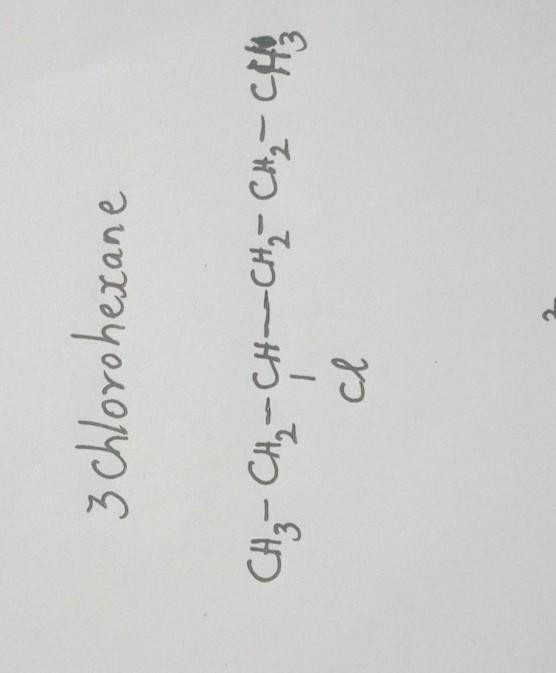 3 Chlorohexane
CH3-CH2-CH-CH2-CH2-CH3
|
Cl
2